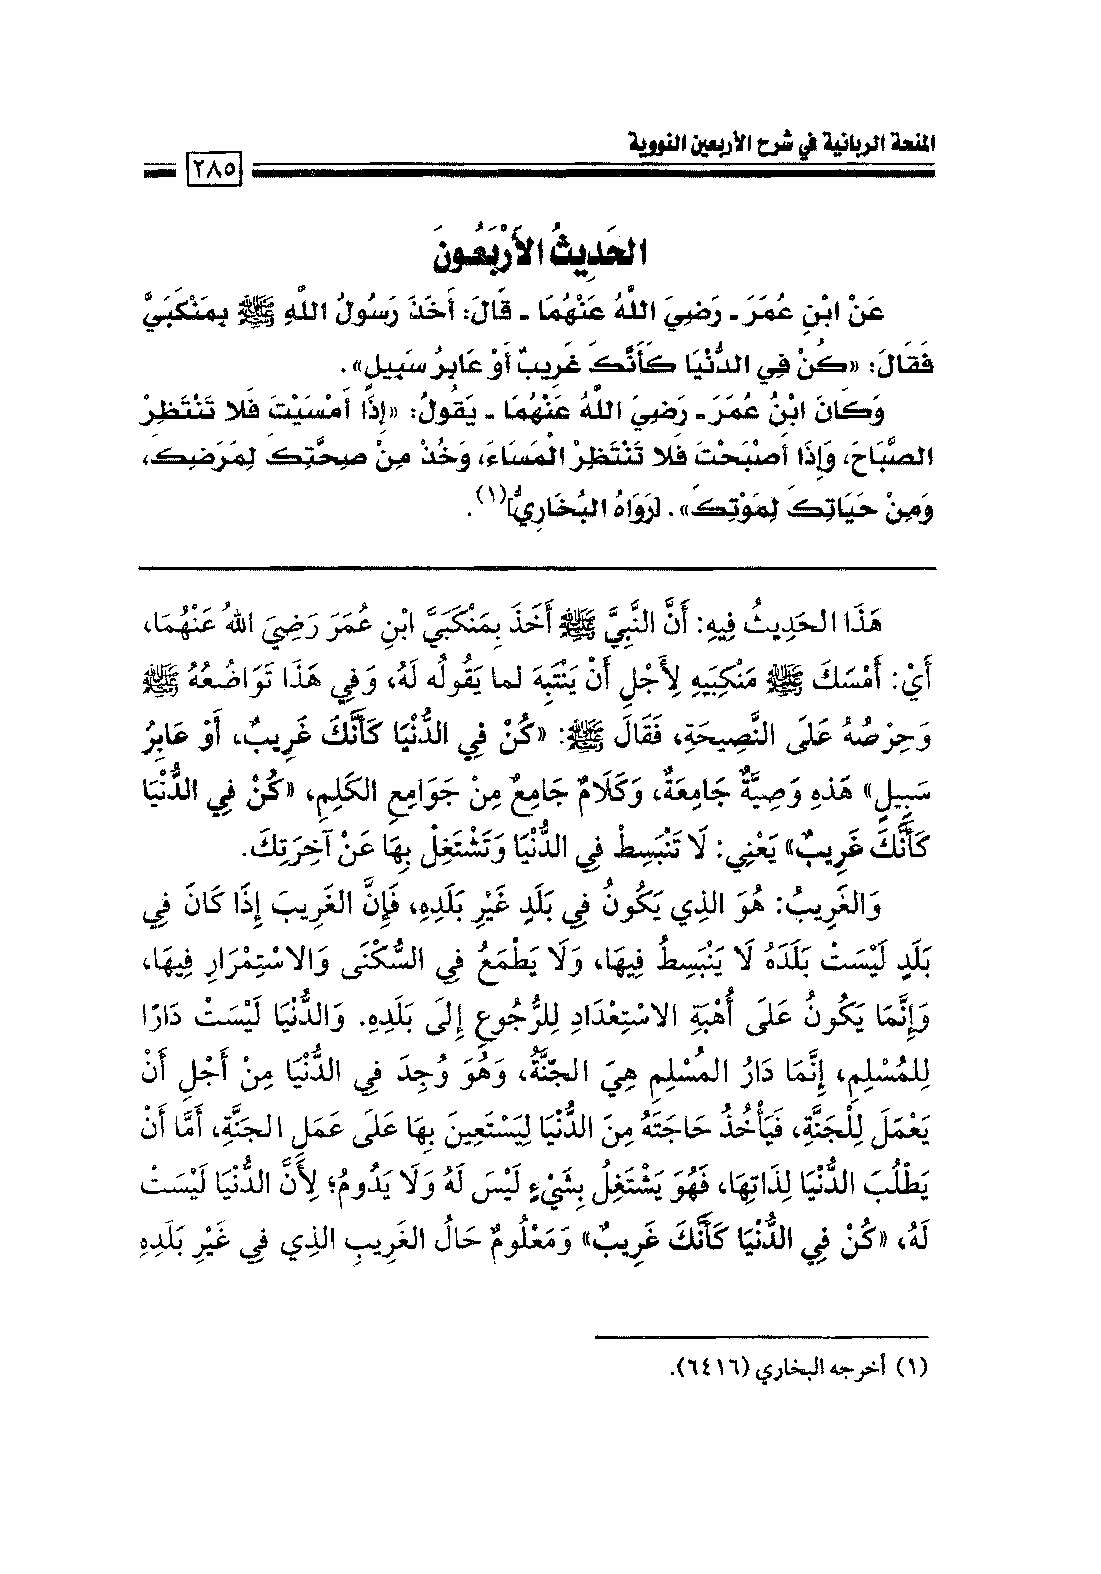 المنحة الربانية في شرح الأربعين النووية
٢٨٥
الحَدِيثُ الأَرْبَعُونَ
عَنْ ابْنِ عُمَرَ ـ رَضِيَ اللَّهُ عَنْهُمَا ـ قَالَ: أَخَذَ رَسُولُ اللَّهِ ﷺ بِمَنْكَبَيَّ
فَقَالَ: «كُنْ فِي الدُّنْيَا كَأَنَّكَ غَرِيبٌ أَوْ عَابِرُ سَبِيلٍ».
وَكَانَ ابْنُ عُمَرَ ـ رَضِيَ اللَّهُ عَنْهُمَا ـ يَقُولُ: «إِذَا أَمْسَيْتَ فَلَا تَنْتَظِرْ
الصَّبَاحَ، وَإِذَا أَصْبَحْتَ فَلَا تَنْتَظِرْ الْمَسَاءَ، وَخُذْ مِنْ صِحَّتِكَ لِمَرَضِكَ،
وَمِنْ حَيَاتِكَ لِمَوْتِكَ». [رَوَاهُ البُخَارِيُّ](١).
هَذَا الحَدِيثُ فِيهِ: أَنَّ النَّبِيَّ ﷺ أَخَذَ بِمَنْكَبَيَّ ابْنِ عُمَرَ رَضِيَ اللهُ عَنْهُمَا،
أَيْ: أَمْسَكَ ﷺ مَنْكِبَيهِ لِأَجْلِ أَنْ يَنْتَبِهَ لما يَقُولُه لَهُ، وَفِي هَذَا تَوَاضُعُهُ ﷺ
وَحِرْصُهُ عَلَى النَّصِيحَةِ، فَقَالَ ﷺ: «كُنْ فِي الدُّنْيَا كَأَنَّكَ غَرِيبٌ، أَوْ عَابِرُ
سَبِيلٍ» هَذِهِ وَصِيَّةٌ جَامِعَةٌ، وَكَلَامٌ جَامِعٌ مِنْ جَوَامِعِ الكَلِمِ، «كُنْ فِي الدُّنْيَا
كَأَنَّكَ غَرِيبٌ» يَعْنِي: لَا تَنْبَسِطْ فِي الدُّنْيَا وَتَشْتَغِلْ بِهَا عَنْ آخِرَتِكَ.
وَالغَرِيبُ: هُوَ الذِي يَكُونُ فِي بَلَدٍ غَيْرِ بَلَدِهِ، فَإِنَّ الغَرِيبَ إِذَا كَانَ فِي
بَلَدٍ لَيْسَتْ بَلَدَهُ لَا يَنْبَسِطُ فِيهَا، وَلَا يَطْمَعُ فِي السُّكْنَى وَالاسْتِمْرَارِ فِيهَا،
وَإِنَّمَا يَكُونُ عَلَى أُهْبَةِ الاسْتِعْدَادِ لِلرُّجُوعِ إِلَى بَلَدِهِ. وَالدُّنْيَا لَيْسَتْ دَارًا
لِلمُسْلِمِ، إِنَّمَا دَارُ المُسْلِمِ هِيَ الجَنَّةُ، وَهُوَ وُجِدَ فِي الدُّنْيَا مِنْ أَجْلِ أَنْ
يَعْمَلَ لِلْجَنَّةِ، فَيَأْخُذُ حَاجَتَهُ مِنَ الدُّنْيَا لِيَسْتَعِينَ بِهَا عَلَى عَمَلِ الجَنَّةِ، أَمَّا أَنْ
يَطْلُبَ الدُّنْيَا لِذَاتِهَا، فَهُوَ يَشْتَغِلُ بِشَيْءٍ لَيْسَ لَهُ وَلَا يَدُومُ؛ لِأَنَّ الدُّنْيَا لَيْسَتْ
لَهُ، «كُنْ فِي الدُّنْيَا كَأَنَّكَ غَرِيبٌ» وَمَعْلُومٌ حَالُ الغَرِيبِ الذِي فِي غَيْرِ بَلَدِهِ
(١) أخرجه البخاري (٦٤١٦).